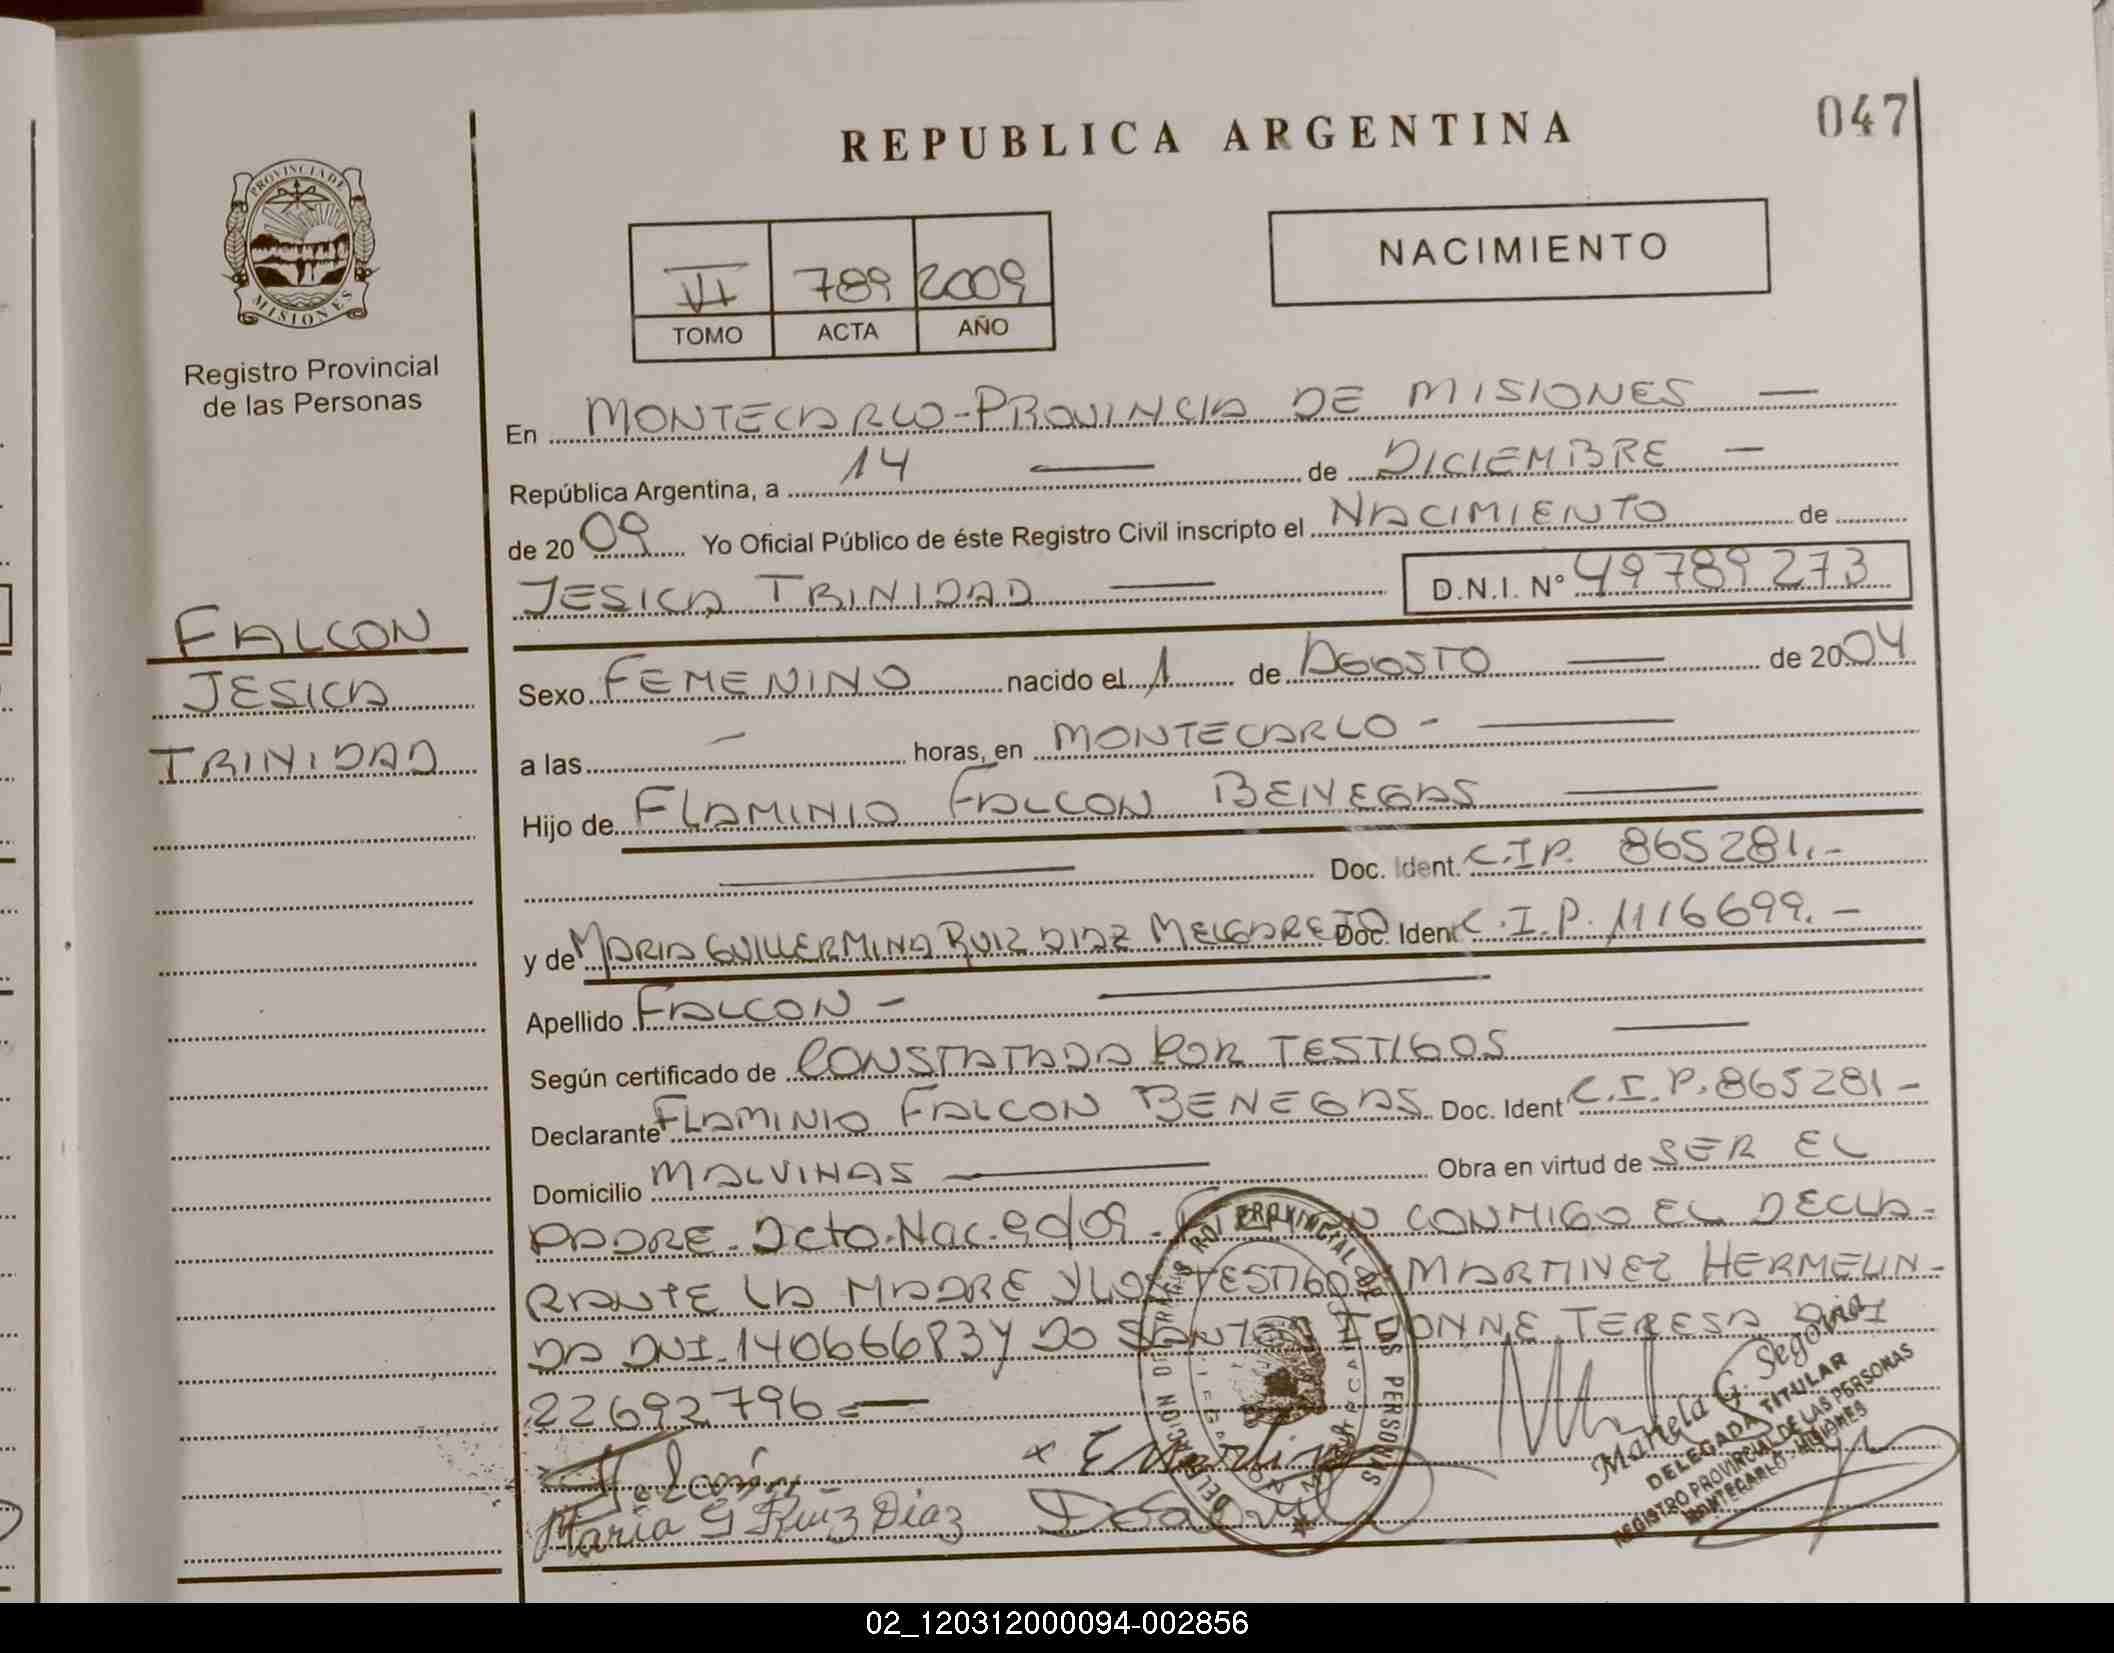 REPUBLICA ARGENTINA
047
PROVINCIA DE
MISIONES
Registro Provincial
de las Personas
VI 789 2009
TOMO ACTA AÑO
NACIMIENTO
FALCON
JESICA
TRINIDAD
En MONTECARLO - PROVINCIA DE MISIONES —
República Argentina, a 14 — de DICIEMBRE —
de 2009 Yo Oficial Público de éste Registro Civil inscripto el NACIMIENTO de
JESICA TRINIDAD — D.N.I. N° 49789273
Sexo FEMENINO nacido el 1 de AGOSTO — de 2004
a las — horas, en MONTECARLO - —
Hijo de FLAMINIO FALCON BENEGAS —
— Doc. Ident. C.I.P. 865281.-
y de MARIA GUILLERMINA RUIZ DIAZ MELGAREJO Doc. Ident C.I.P. 1116699.-
Apellido FALCON - —
Según certificado de CONSTATADA POR TESTIGOS —
Declarante FLAMINIO FALCON BENEGAS Doc. Ident C.I.P. 865281-
Domicilio MALVINAS — Obra en virtud de SER EL
PADRE. Dcto. Nac. 90/09. CONMIGO EL DECLA-
RANTE LA MADRE Y LOS TESTIGOS MARTINEZ HERMELIN-
DA DNI. 14066683 Y DO SANTOS IDONNE TERESA DNI
22692796.—
Falcón
María G Ruiz Diaz
REGISTRO PROVINCIAL DE LAS PERSONAS
DELEGACION
MONTECARLO
Mariela G. Segovia
DELEGADA TITULAR
REGISTRO PROVINCIAL DE LAS PERSONAS
MONTECARLO - MISIONES
02_120312000094-002856